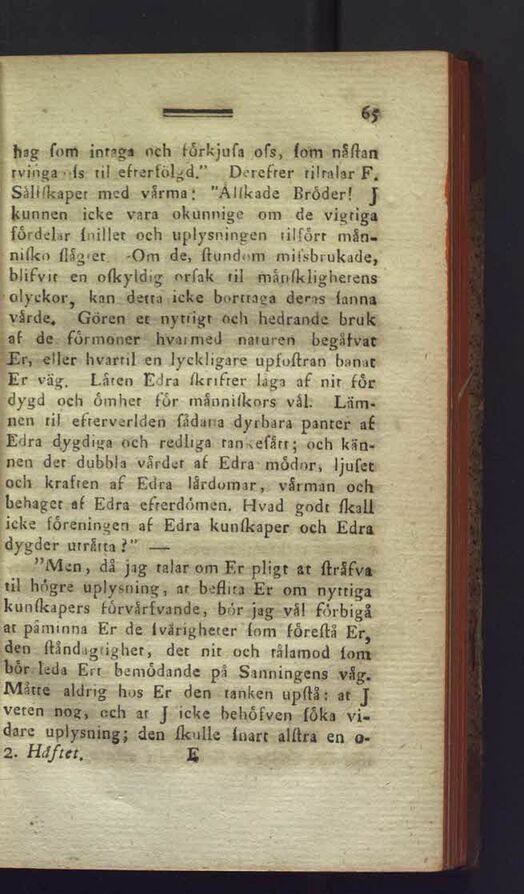 65
hag ſom intaga och förkjuſa oſs, ſom nåſtan
tvinga oſs til efterfölgd." Derefter tiltalar F.
Sållſkapet med vårma: "Ålſkade Bröder! J
kunnen icke vara okunnige om de vigtiga
fördelar ſnillet och uplysningen tilfört mån-
niſko ſlågtet. Om de, ſtundom miſsbrukade,
blifvit en oſkyldig orſak til månſklighetens
olyckor, kan detta icke borttaga deras ſanna
vårde. Gören et nyttigt och hedrande bruk
af de förmoner hvarmed naturen begåfvat
Er, eller hvartil en lyckligare upfoſtran banat
Er våg. Låten Edra ſkrifter låga af nit för
dygd och ömhet för månniſkors vål. Läm-
nen til efterverlden ſådana dyrbara panter af
Edra dygdiga och redliga tankeſått; och kän-
nen det dubbla vårdet af Edra mödor, ljuſet
och kraften af Edra lårdomar, vårman och
behaget af Edra efterdömen. Hvad godt ſkall
icke föreningen af Edra kunſkaper och Edra
dygder utråtta?" —
"Men, då jag talar om Er pligt at ſtråfva
til högre uplysning, at beflita Er om nyttiga
kunſkapers förvårfvande, bör jag vål förbigå
at påminna Er de ſvårigheter ſom föreſtå Er,
den ſtåndagtighet, det nit och tålamod ſom
bör leda Ert bemödande på Sanningens våg.
Måtte aldrig hos Er den tanken upſtå: at J
veten nog, och at J icke behöfven ſöka vi-
dare uplysning; den ſkulle ſnart alſtra en o-
2. Håftet. E